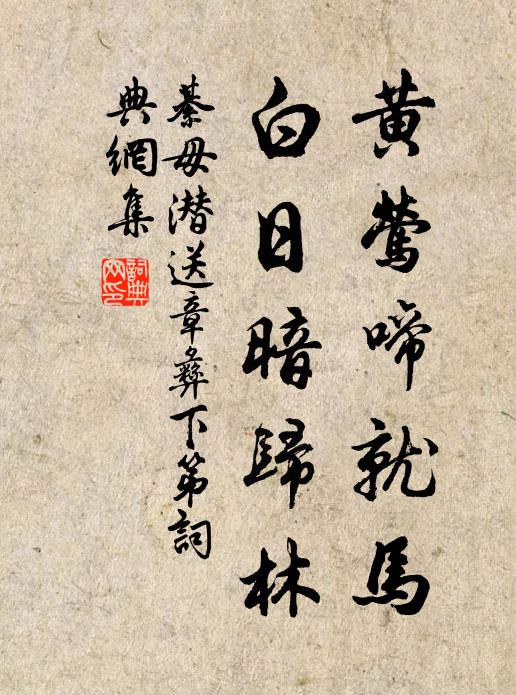 黄鶯啼就馬
白日暗歸林
綦毋潜送章彝下第詞
典網集
詞典
网印